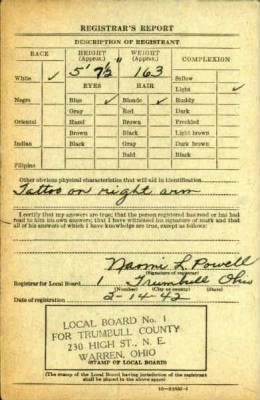 REGISTRAR'S REPORT
DESCRIPTION OF REGISTRANT
RACE HEIGHT (Approx.) WEIGHT (Approx.) COMPLEXION
5' 7½" 163
White ✓ Sallow
EYES HAIR Light ✓
Negro Blue ✓ Blonde ✓ Ruddy
Gray Red Dark
Oriental Hazel Brown Freckled
Brown Black Light brown
Indian Black Gray Dark brown
Bald Black
Filipino
Other obvious physical characteristics that will aid in identification
Tattoo on right arm
I certify that my answers are true; that the person registered has read or has had
read to him his own answers; that I have witnessed his signature or mark and that
all of his answers of which I have knowledge are true, except as follows:
Naomi L. Powell
(Signature of registrar)
Registrar for Local Board 1 Trumbull Ohio
(Number) (City or county) (State)
Date of registration 2-14-42
LOCAL BOARD No. 1
FOR TRUMBULL COUNTY
230 HIGH ST., N. E.
WARREN, OHIO
(STAMP OF LOCAL BOARD)
(The stamp of the Local Board having jurisdiction of the registrant
shall be placed in the above space)